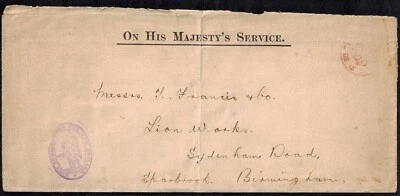 ON HIS MAJESTY'S SERVICE.
Messrs. T. Francis & Co.
Lion Works.
Sydenham Road,
Sparbrook. Birmingham.